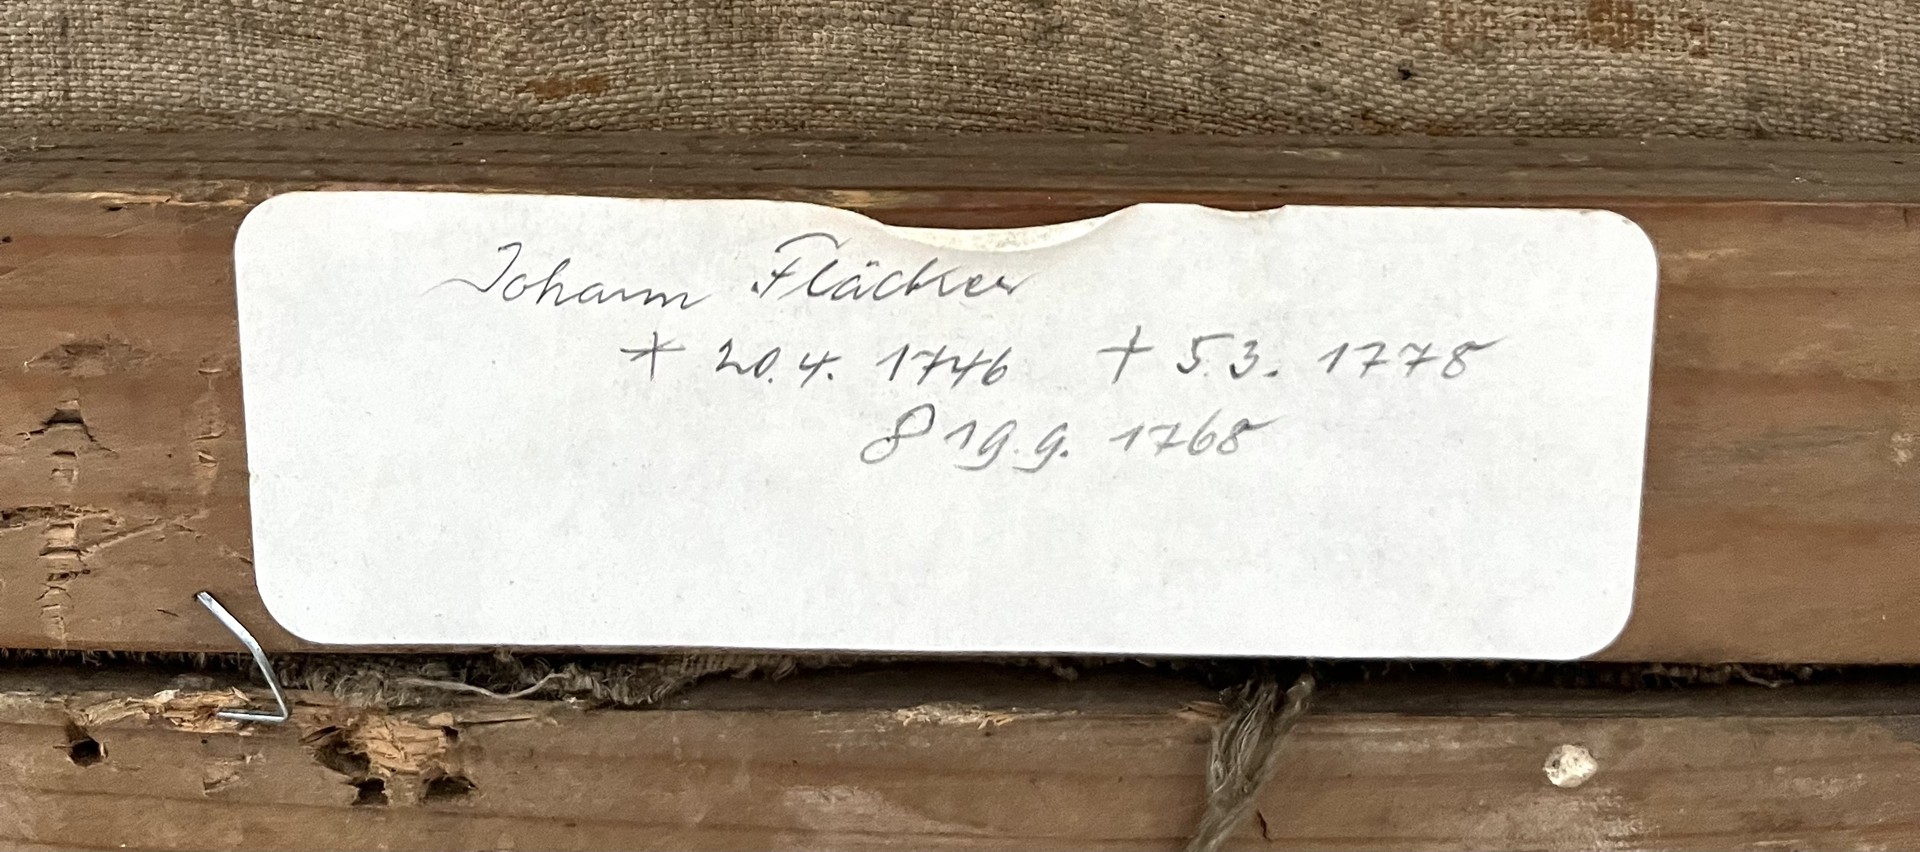 Johann Fläcker
* 20.4. 1746 † 5.3. 1778
8 19.9. 1768